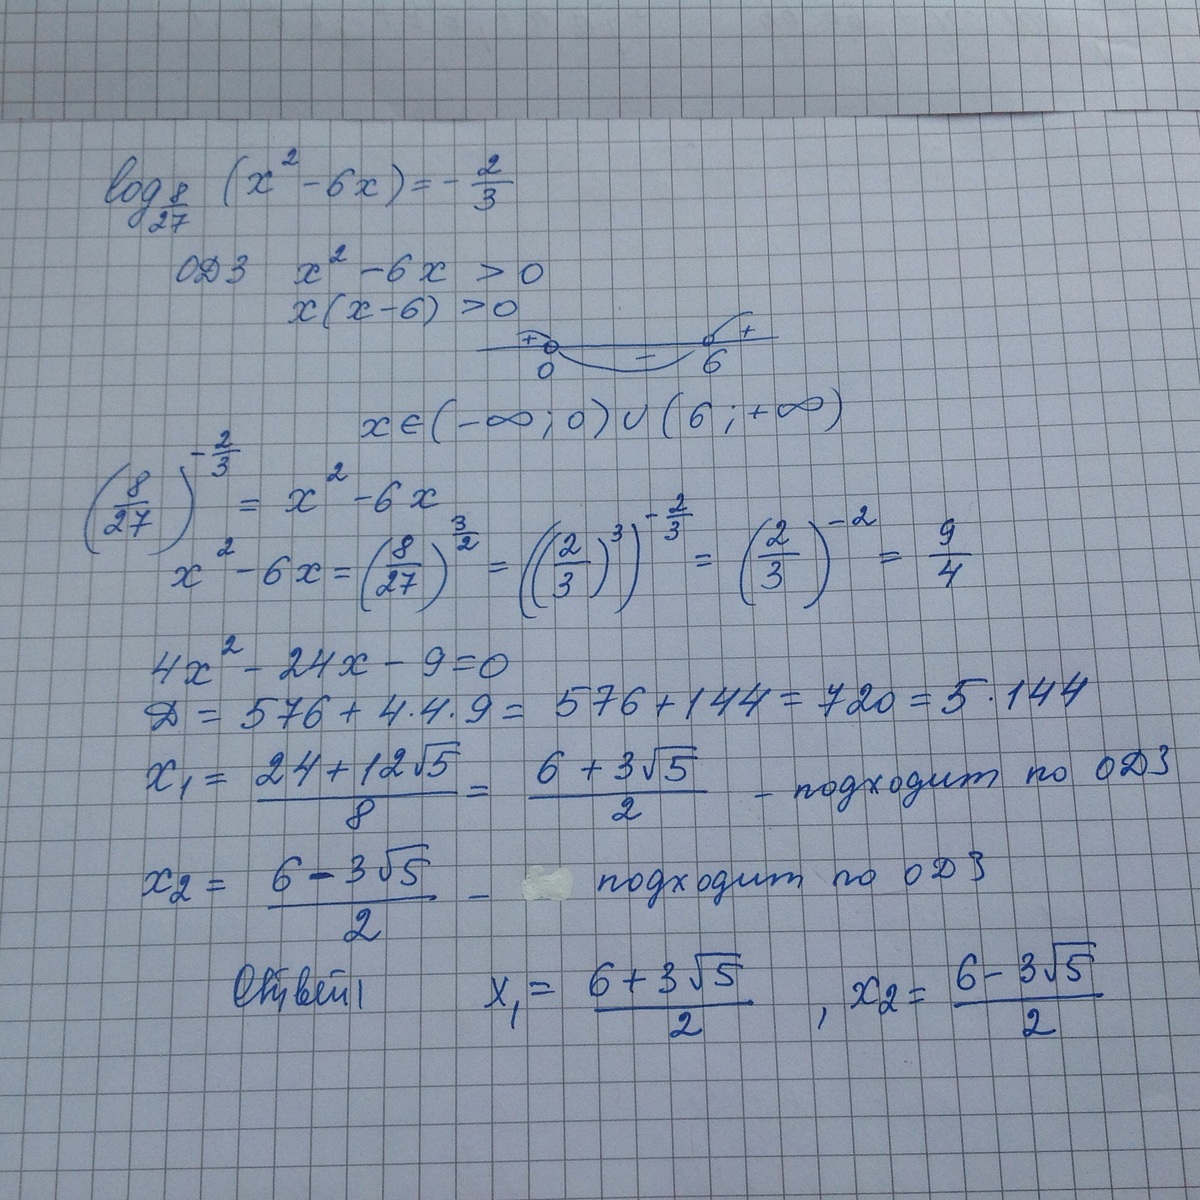 log_{8/27} (x² - 6x) = - 2/3
ОДЗ x² - 6x > 0
x(x - 6) > 0
+ - +
0 6
x ∈ (-∞; 0) ∪ (6; +∞)
(8/27)^{-2/3} = x² - 6x
x² - 6x = (8/27)^{3/2} = ((2/3)³)^{-2/3} = (2/3)^{-2} = 9/4
4x² - 24x - 9 = 0
D = 576 + 4·4·9 = 576 + 144 = 720 = 5·144
x₁ = (24 + 12√5)/8 = (6 + 3√5)/2 - подходит по ОДЗ
x₂ = (6 - 3√5)/2 - подходит по ОДЗ
Ответ: x₁ = (6 + 3√5)/2 , x₂ = (6 - 3√5)/2